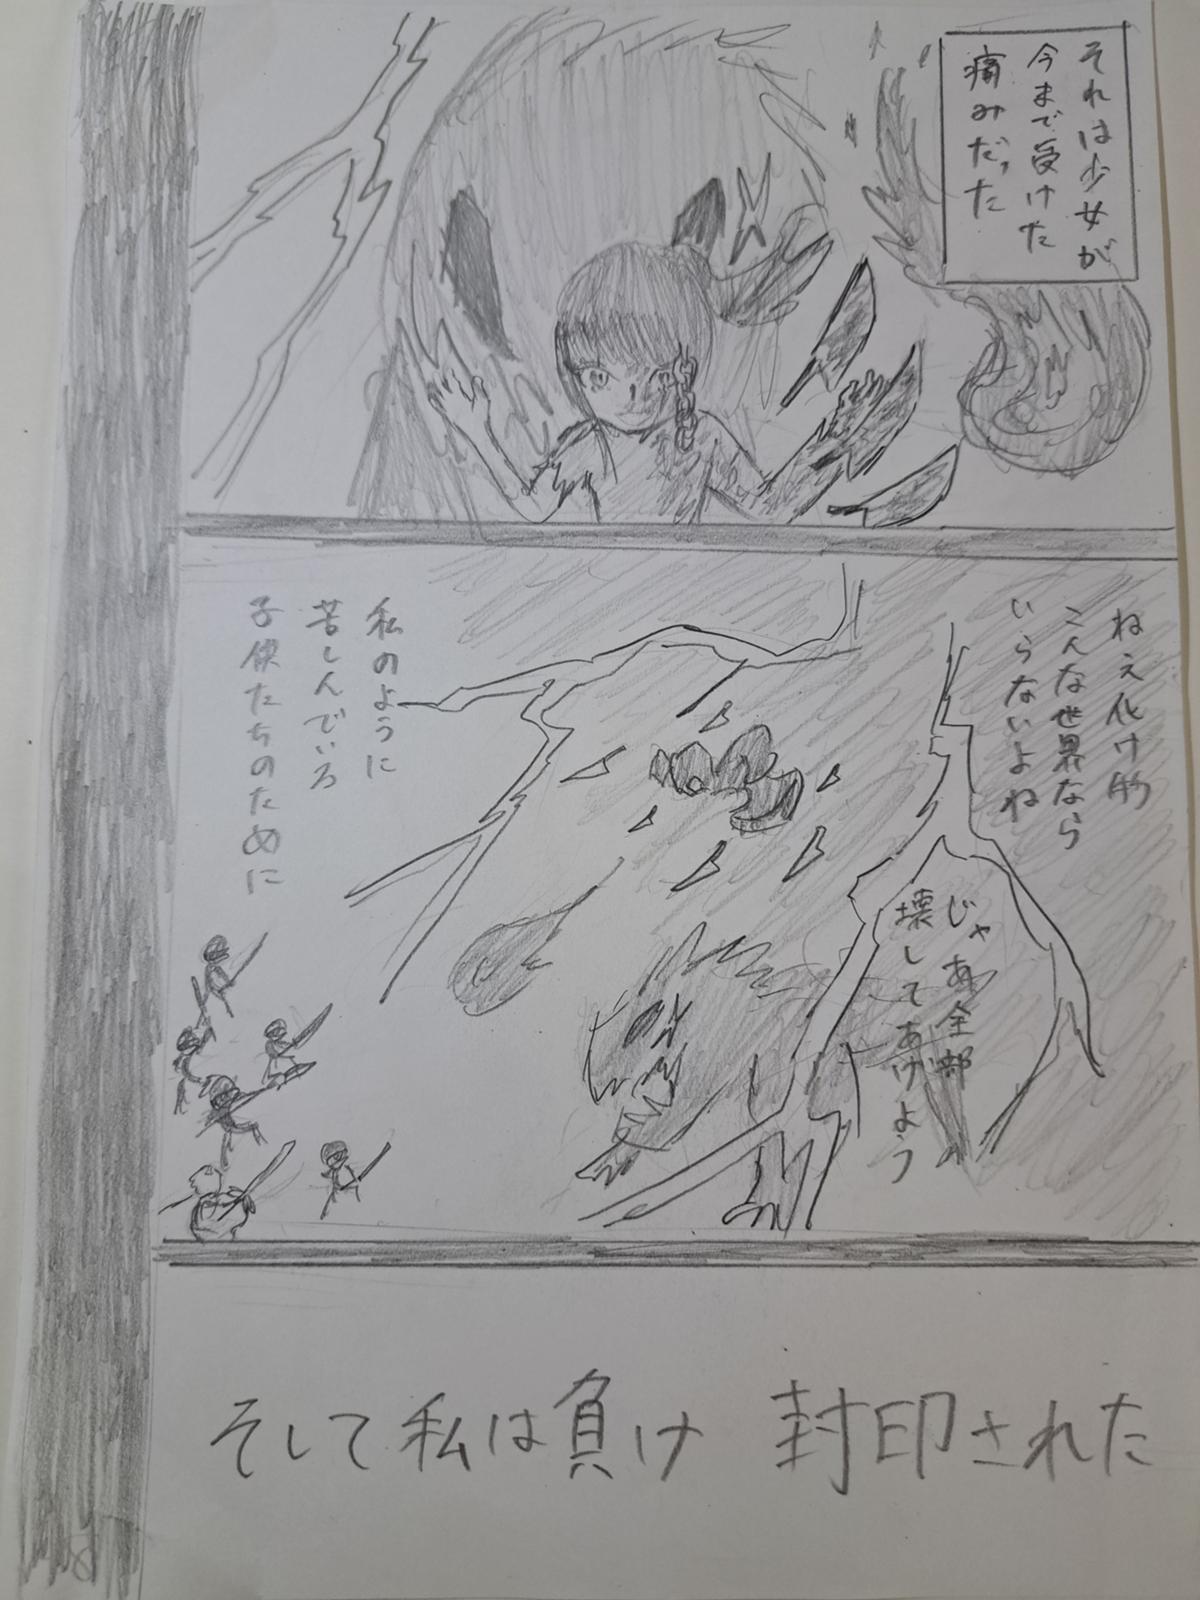 それは少女が
今まで受けた
痛みだった
ねえ化け物
こんな世界なら
いらないよね
じゃあ全部
壊してあげよう
私のように
苦しんでいる
子供たちのために
そして私は負け 封印された